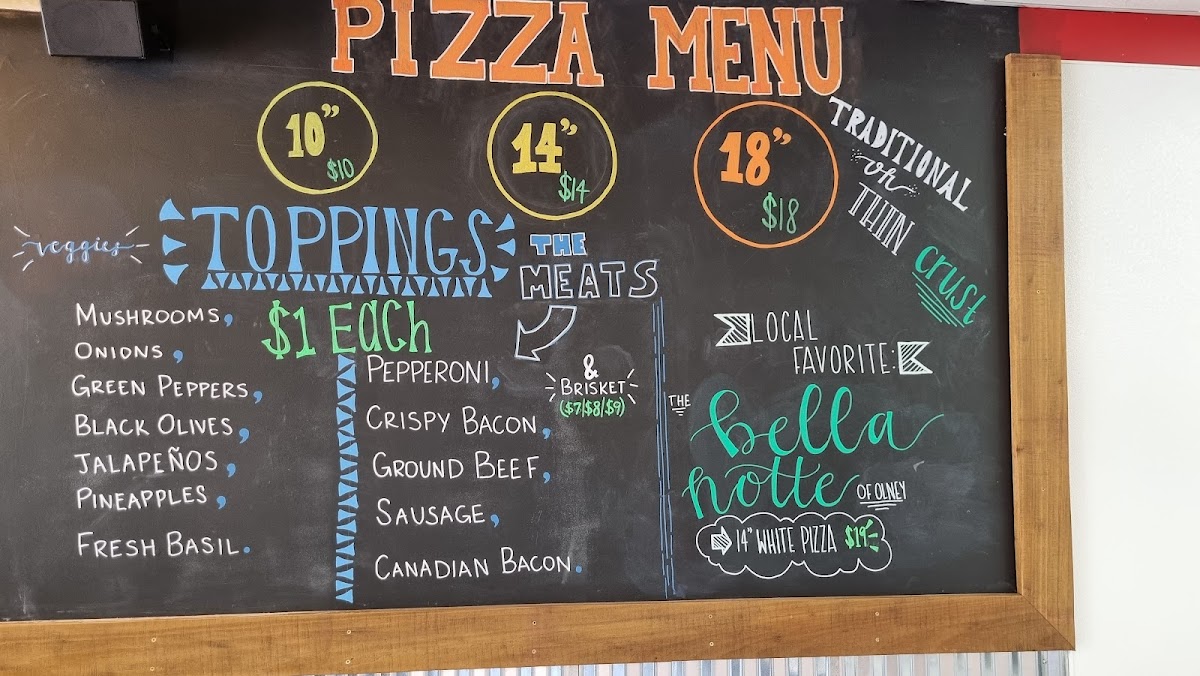 PIZZA MENU
10" $10
14" $14
18" $18
TRADITIONAL
or
THIN
crust
veggies
TOPPINGS
$1 EACH
MUSHROOMS,
ONIONS,
GREEN PEPPERS,
BLACK OLIVES,
JALAPEÑOS,
PINEAPPLES,
FRESH BASIL.
THE
MEATS
PEPPERONI,
CRISPY BACON,
GROUND BEEF,
SAUSAGE,
CANADIAN BACON.
&
BRISKET
($7/$8/$9)
LOCAL
FAVORITE:
THE
bella
notte
OF OLNEY
14" WHITE PIZZA $19